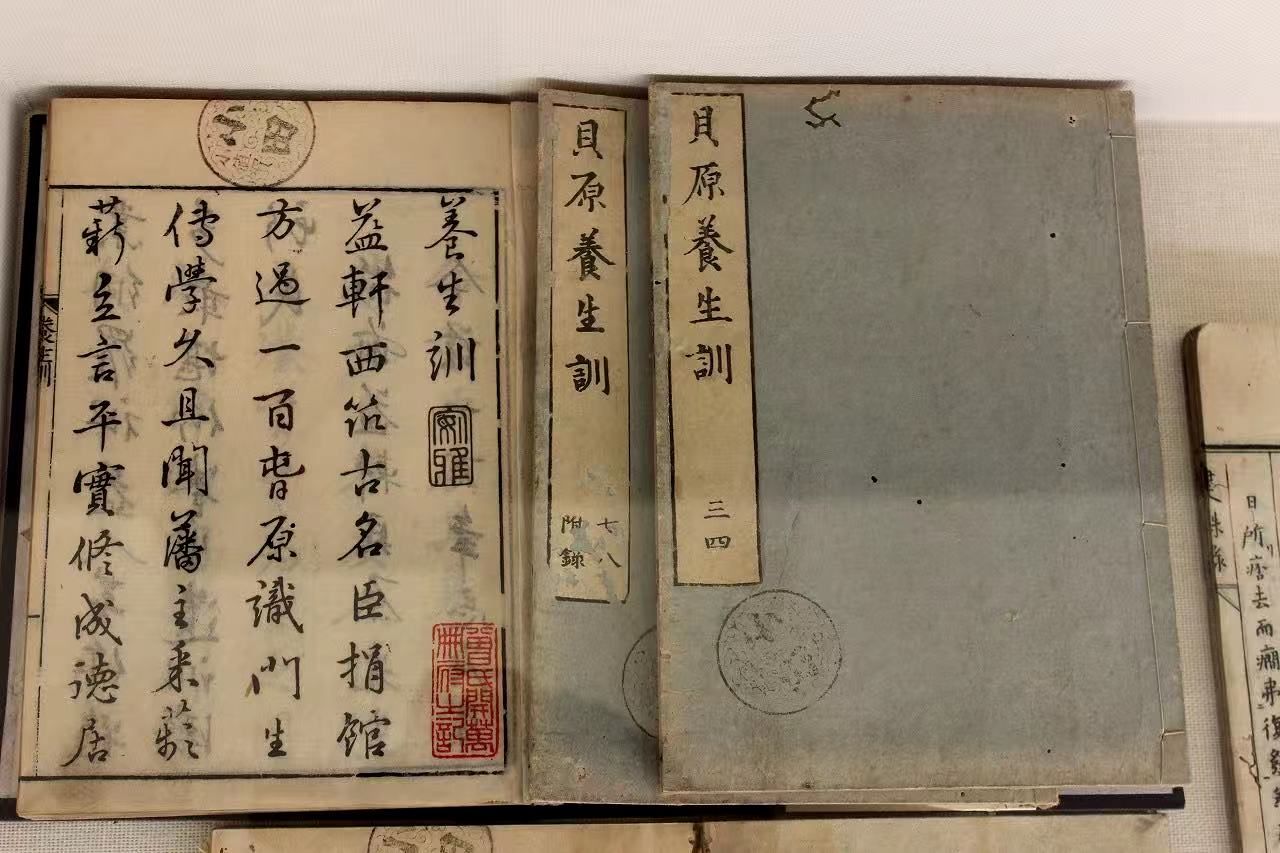 貝原養生訓
三四
貝原養生訓
七八
附錄
養生訓
益軒西筑古名臣捐館
方過一百旾原識門生
傳學久且聞藩主采於
薪立言平實修成德居
養生訓